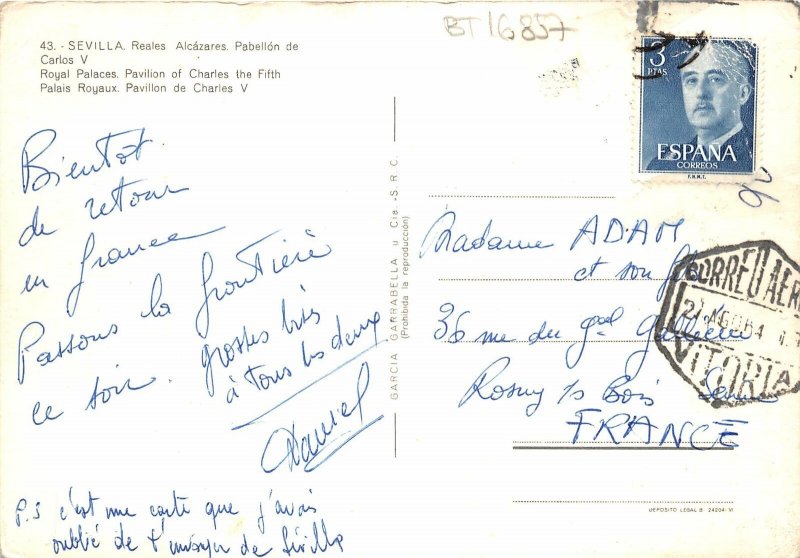 BT16857
43. - SEVILLA. Reales Alcázares. Pabellón de
Carlos V
Royal Palaces. Pavilion of Charles the Fifth
Palais Royaux. Pavillon de Charles V
3
PTAS
ESPAÑA
CORREOS
F.N.M.T.
Bientot
de retour
en france
Passons la frontière
ce soir.
grosses bises
à tous les deux
Daniel
P.S c'est une carte que j'avais
oublié de t'envoyer de Séville
GARCIA GARRABELLA y Cía. -S.R.C.
(Prohibida la reproducción)
Madame ADAM
et son fils
36 rue du gal Gallieni
Rosny s/s Bois Seine
FRANCE
CORREO AER
21 AGO 64
VITORIA
DEPOSITO LEGAL B. 24204-VI